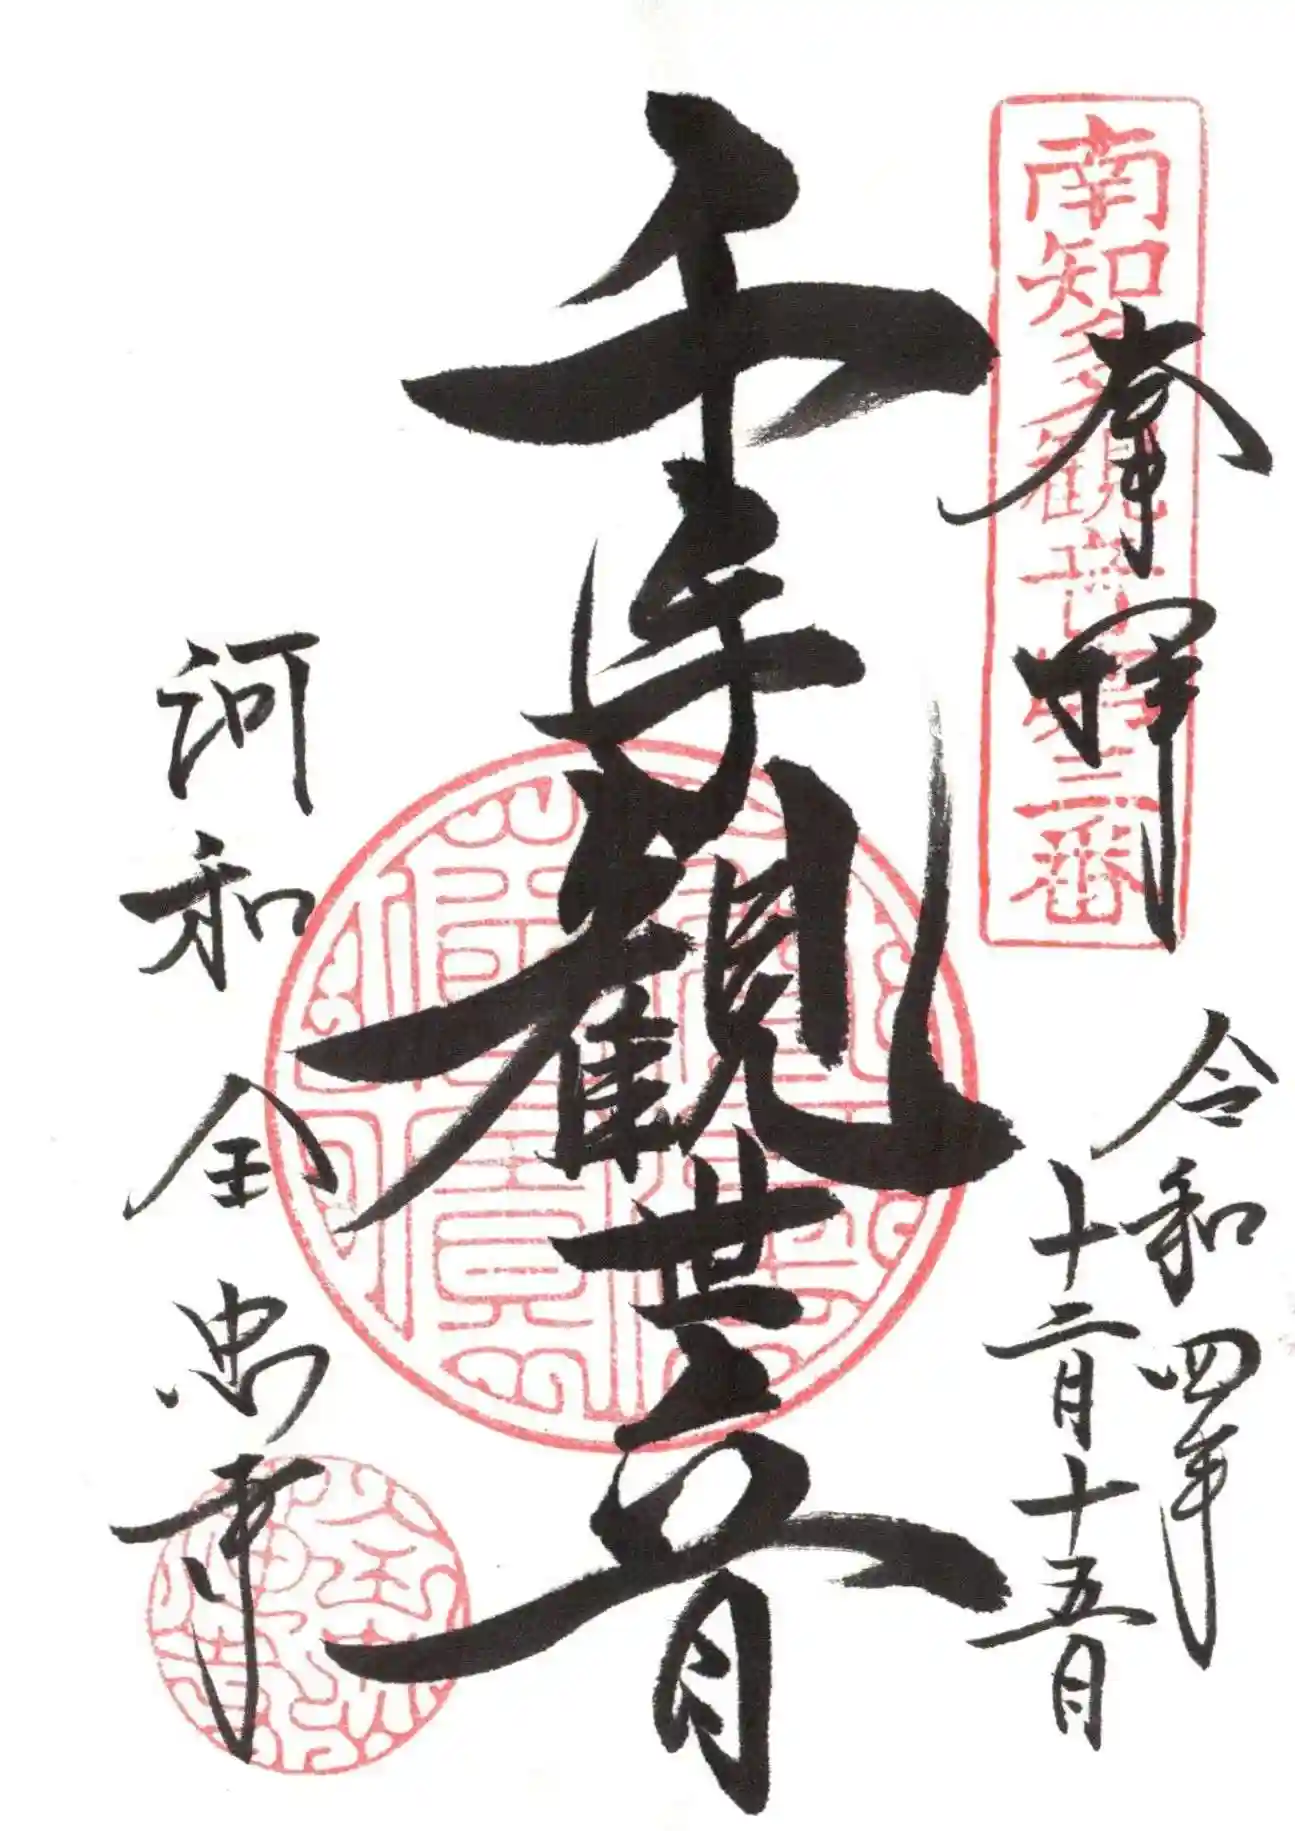 奉拝
令和四年
十二月十五日
南知多観音
三番
千手観世音
河和 全忠寺